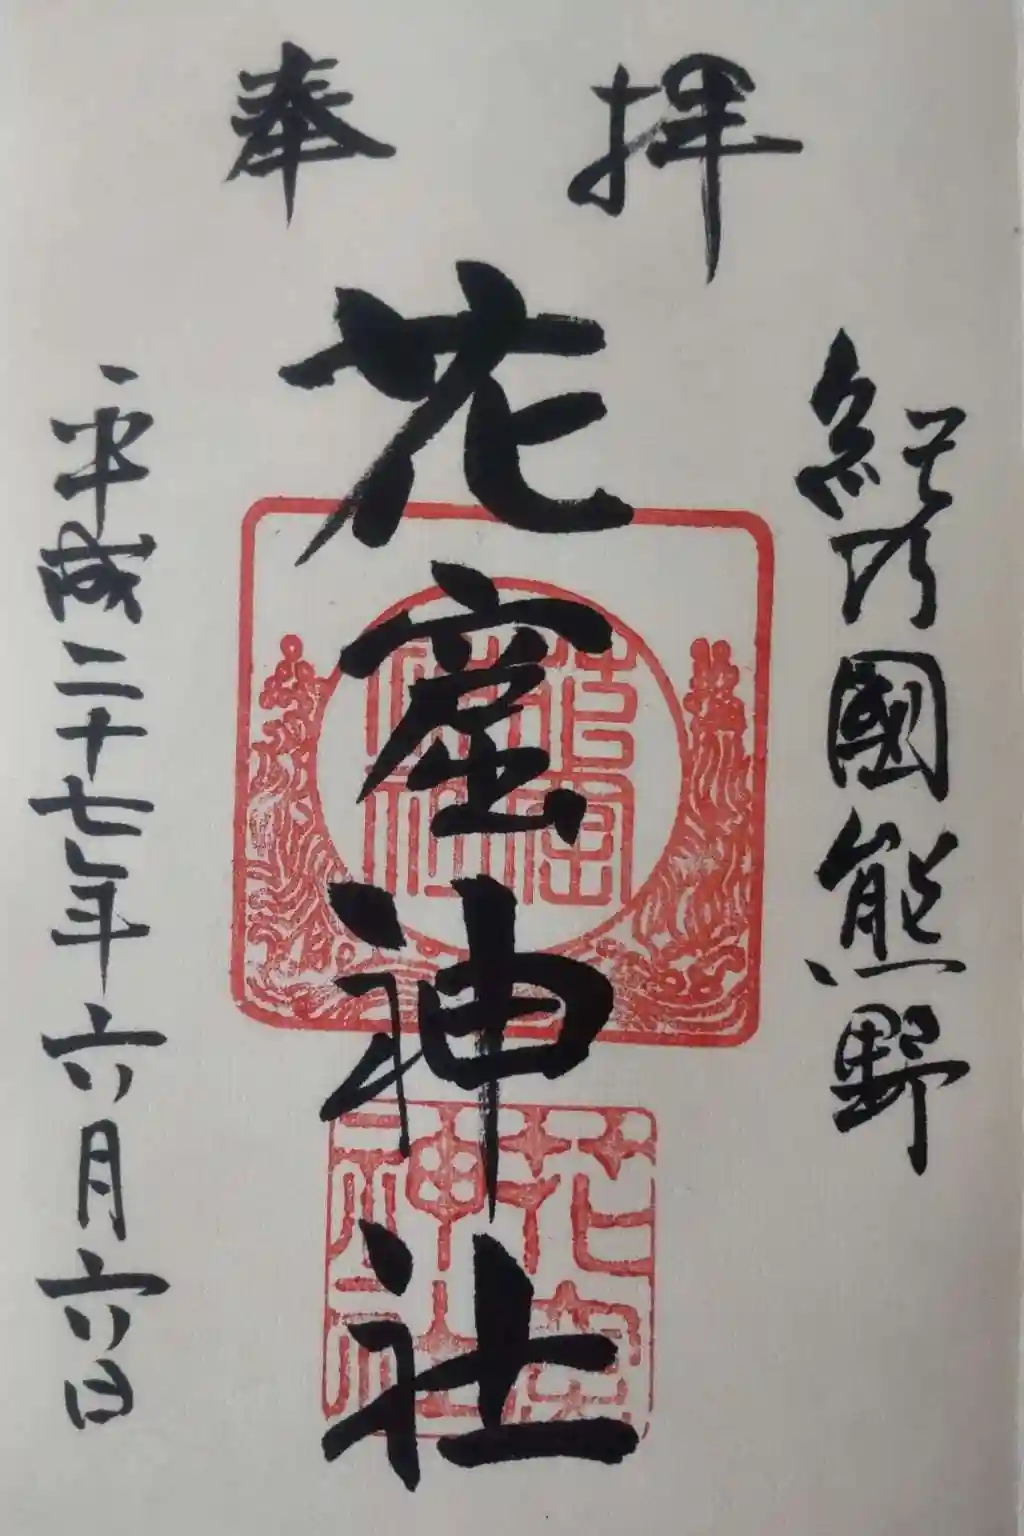 奉拝
紀乃國熊野
花窟神社
平成二十七年六月六日
花窟神社
花窟神社